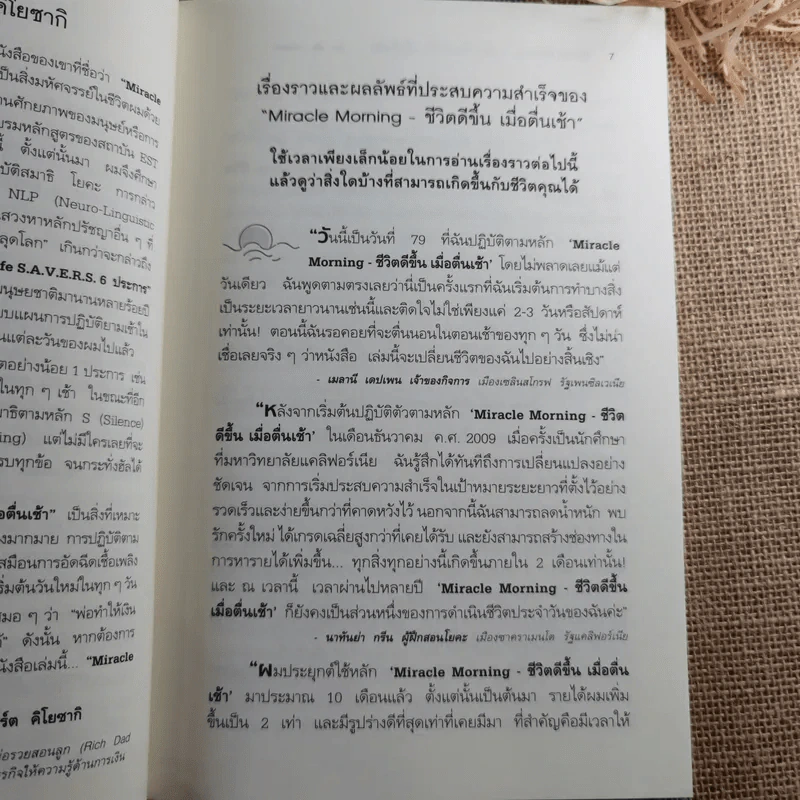 คิโยซากิ
นังสือของเขาที่ชื่อว่า “Miracle
เป็นสิ่งมหัศจรรย์ในชีวิตผมด้วย
านศักยภาพของมนุษย์หรือการ
บรมหลักสูตรของสถาบัน EST
นี้ ตั้งแต่นั้นมา ผมจึงศึกษา
บัติสมาธิ โยคะ การกล่าว
NLP (Neuro-Linguistic
แสวงหาหลักปรัชญาอื่น ๆ ที่
สุดโลก” เกินกว่าจะกล่าวถึง
fe S.A.V.E.R.S. 6 ประการ”
มนุษยชาติมานานหลายร้อยปี
บบแผนการปฏิบัติยามเช้าใน
นแต่ละวันของผมไปแล้ว
ตอย่างน้อย 1 ประการ เช่น
ในทุก ๆ เช้า ในขณะที่อีก
มาธิตามหลัก S (Silence)
ing) แต่ไม่มีใครเลยที่จะ
รบทุกข้อ จนกระทั่งฮัลได้
มื่อตื่นเช้า” เป็นสิ่งที่เหมาะ
งมากมาย การปฏิบัติตาม
สมือนการอัดฉีดเชื้อเพลิง
ริ่มต้นวันใหม่ในทุก ๆ วัน
สมอ ๆ ว่า “พ่อทำให้เงิน
” ดังนั้น หากต้องการ
นังสือเล่มนี้... “Miracle
ร์ต คิโยซากิ
อรวยสอนลูก (Rich Dad
ุรกิจให้ความรู้ด้านการเงิน
7
เรื่องราวและผลลัพธ์ที่ประสบความสำเร็จของ
“Miracle Morning - ชีวิตดีขึ้น เมื่อตื่นเช้า”
ใช้เวลาเพียงเล็กน้อยในการอ่านเรื่องราวต่อไปนี้
แล้วดูว่าสิ่งใดบ้างที่สามารถเกิดขึ้นกับชีวิตคุณได้
“วันนี้เป็นวันที่ 79 ที่ฉันปฏิบัติตามหลัก ‘Miracle
Morning - ชีวิตดีขึ้น เมื่อตื่นเช้า’ โดยไม่พลาดเลยแม้แต่
วันเดียว ฉันพูดตามตรงเลยว่านี่เป็นครั้งแรกที่ฉันเริ่มต้นการทำบางสิ่ง
เป็นระยะเวลายาวนานเช่นนี้และติดใจไม่ใช่เพียงแค่ 2-3 วันหรือสัปดาห์
เท่านั้น! ตอนนี้ฉันรอคอยที่จะตื่นนอนในตอนเช้าของทุก ๆ วัน ซึ่งไม่น่า
เชื่อเลยจริง ๆ ว่าหนังสือ เล่มนี้จะเปลี่ยนชีวิตของฉันไปอย่างสิ้นเชิง”
- เมลานี เดปเพน เจ้าของกิจการ เมืองเซลินสโกรฟ รัฐเพนซิลเวเนีย
“หลังจากเริ่มต้นปฏิบัติตัวตามหลัก ‘Miracle Morning - ชีวิต
ดีขึ้น เมื่อตื่นเช้า’ ในเดือนธันวาคม ค.ศ. 2009 เมื่อครั้งเป็นนักศึกษา
ที่มหาวิทยาลัยแคลิฟอร์เนีย ฉันรู้สึกได้ทันทีถึงการเปลี่ยนแปลงอย่าง
ชัดเจน จากการเริ่มประสบความสำเร็จในเป้าหมายระยะยาวที่ตั้งไว้อย่าง
รวดเร็วและง่ายขึ้นกว่าที่คาดหวังไว้ นอกจากนี้ฉันสามารถลดน้ำหนัก พบ
รักครั้งใหม่ ได้เกรดเฉลี่ยสูงกว่าที่เคยได้รับ และยังสามารถสร้างช่องทางใน
การหารายได้เพิ่มขึ้น... ทุกสิ่งทุกอย่างนี้เกิดขึ้นภายใน 2 เดือนเท่านั้น!
และ ณ เวลานี้ เวลาผ่านไปหลายปี ‘Miracle Morning - ชีวิตดีขึ้น
เมื่อตื่นเช้า’ ก็ยังคงเป็นส่วนหนึ่งของการดำเนินชีวิตประจำวันของฉันค่ะ”
- นาทันย่า กรีน ผู้ฝึกสอนโยคะ เมืองซาคราเมนโต รัฐแคลิฟอร์เนีย
“ผมประยุกต์ใช้หลัก ‘Miracle Morning - ชีวิตดีขึ้น เมื่อตื่น
เช้า’ มาประมาณ 10 เดือนแล้ว ตั้งแต่นั้นเป็นต้นมา รายได้ผมเพิ่ม
ขึ้นเป็น 2 เท่า และมีรูปร่างดีที่สุดเท่าที่เคยมีมา ที่สำคัญคือมีเวลาให้